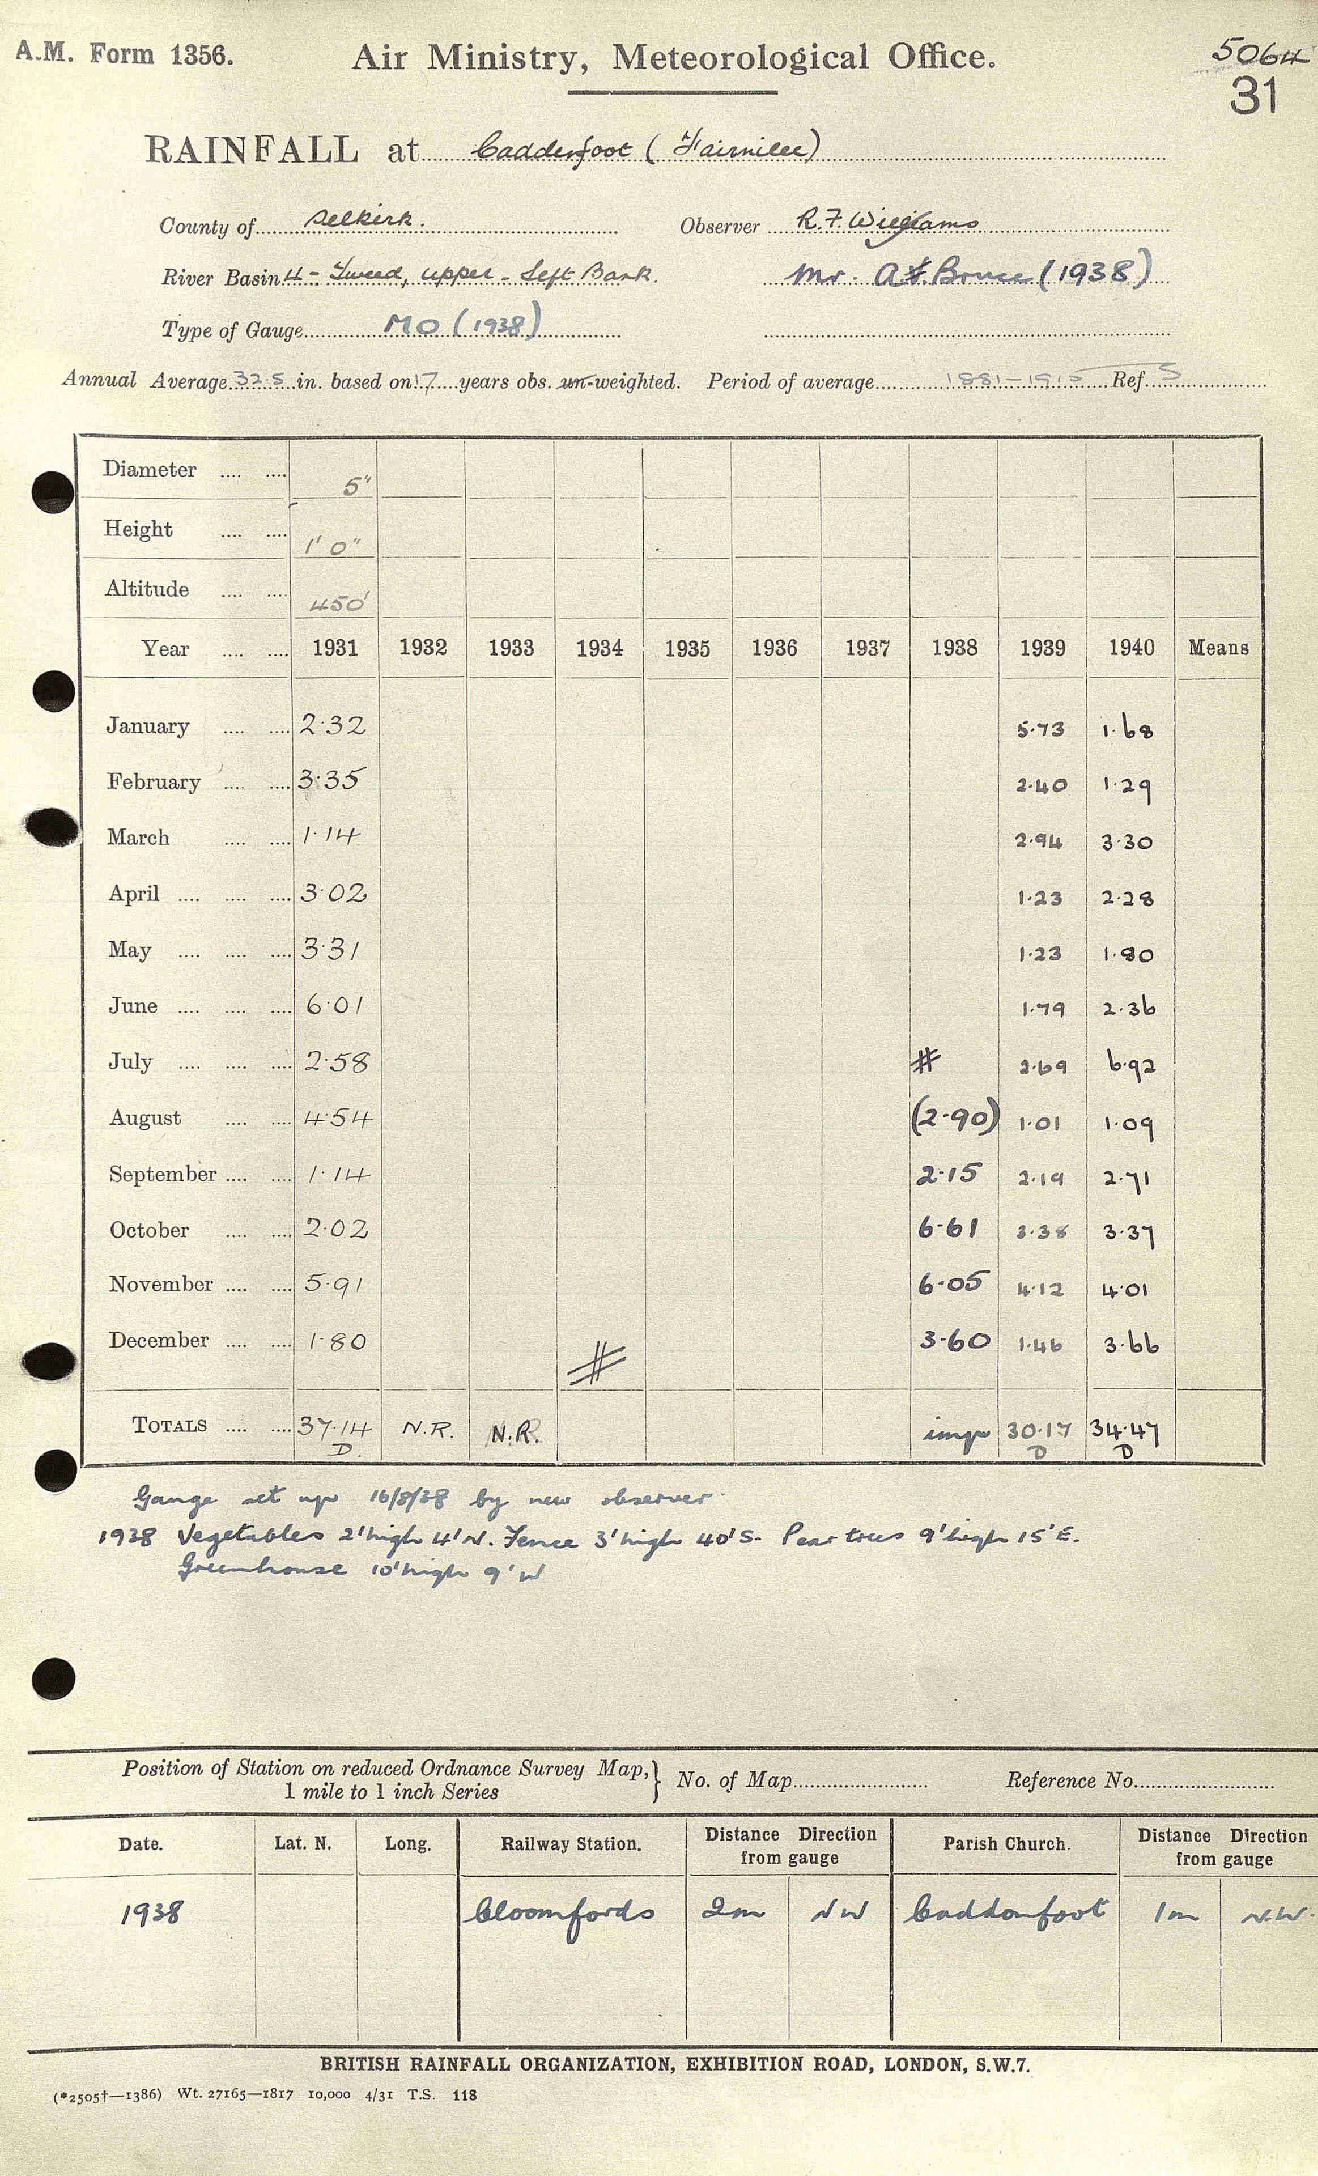 A.M. Form 1356. Air Ministry, Meteorological Office. 5064
31
RAINFALL at Caddonfoot (Fairnilee)
County of Selkirk. Observer R.F. Williams
River Basin 4 - Tweed, upper - Left Bank. Mr. A Bruce (1938)
Type of Gauge MO (1938)
Annual Average 32.5 in. based on 17 years obs. un-weighted. Period of average 1881-1915 Ref. S
Diameter .... .... 5"
Height .... .... 1' 0"
Altitude .... .... 450'
Year .... .... 1931 1932 1933 1934 1935 1936 1937 1938 1939 1940 Means
January .... .... 2.32 5.73 1.68
February .... .... 3.35 2.40 1.29
March .... .... 1.14 2.94 3.30
April .... .... .... 3.02 1.23 2.28
May .... .... .... 3.31 1.23 1.80
June .... .... .... 6.01 1.79 2.36
July .... .... .... 2.58 # 2.69 6.92
August .... .... 4.54 (2.90) 1.01 1.09
September .... .... 1.14 2.15 2.19 2.71
October .... .... 2.02 6.61 3.38 3.37
November .... .... 5.91 6.05 4.12 4.01
December .... .... 1.80 # 3.60 1.46 3.66
TOTALS .... .... 37.14 N.R. N.R. imp 30.17 34.47
D D D
Gauge set up 16/8/38 by new observer
1938 Vegetables 2' high 4' N. Fence 3' high 40' S. Pear trees 9' high 15' E.
Greenhouse 10' high 9' W
Position of Station on reduced Ordnance Survey Map, } No. of Map Reference No.
1 mile to 1 inch Series
Date. Lat. N. Long. Railway Station. Distance Direction from gauge Parish Church. Distance Direction from gauge
1938 Cloomfords 2m NW Caddonfoot 1m N.W.
BRITISH RAINFALL ORGANIZATION, EXHIBITION ROAD, LONDON, S.W.7.
(*2505†—1386) Wt. 27165—1817 10,000 4/31 T.S. 118